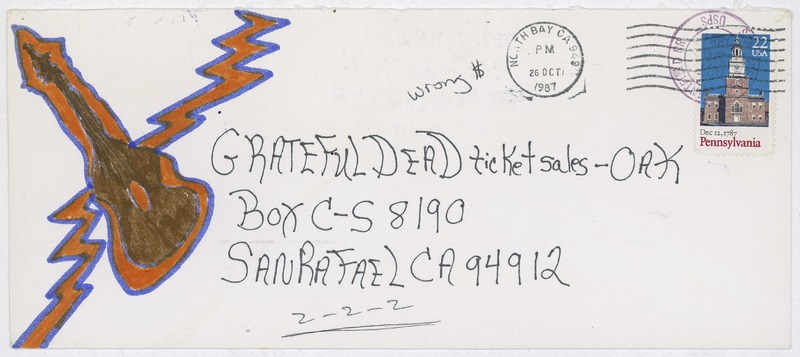 NORTH BAY CA 949
P.M
26 OCT
1987
USPS
22
USA
Dec 12, 1787
Pennsylvania
wrong $
GRATEFUL DEAD ticket sales - OAK
BOX C-S 8190
SAN RAFAEL CA 94912
2-2-2